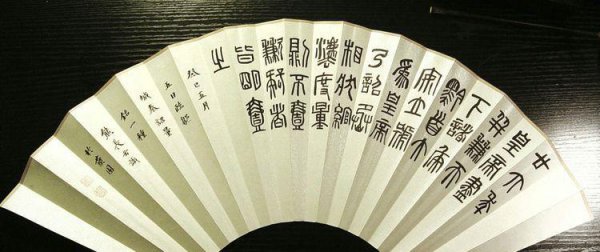 廿六年
皇帝盡
并兼天
下諸侯
黔首大
安立號
為皇帝
乃詔丞
相狀綰
灋度量
則不壹
歉疑者
皆明壹
之
癸巳五月
五日臨
秦詔量
銘一種